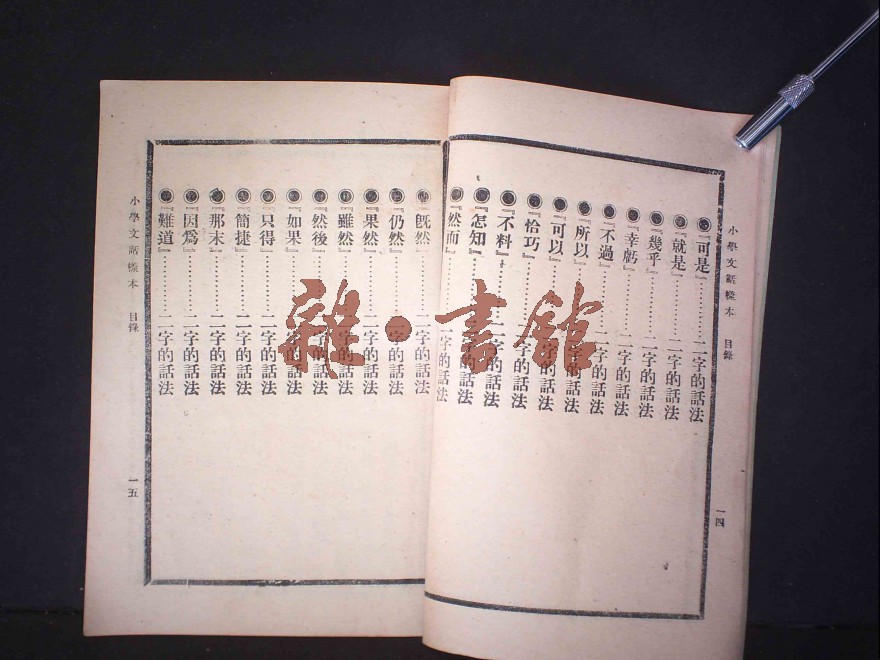 小學文話標本　目錄
一四
『可是』…………二字的話法
『就是』…………二字的話法
『幾乎』…………二字的話法
『幸虧』…………二字的話法
『不過』…………二字的話法
『所以』…………二字的話法
『可以』…………二字的話法
『恰巧』…………二字的話法
『不料』…………二字的話法
『怎知』…………二字的話法
『然而』…………二字的話法
『旣然』…………二字的話法
『仍然』…………二字的話法
『果然』…………二字的話法
『雖然』…………二字的話法
『然後』…………二字的話法
『如果』…………二字的話法
『只得』…………二字的話法
『簡捷』…………二字的話法
『那末』…………二字的話法
『因爲』…………二字的話法
『難道』…………二字的話法
小學文話標本　目錄
一五
雜·書館